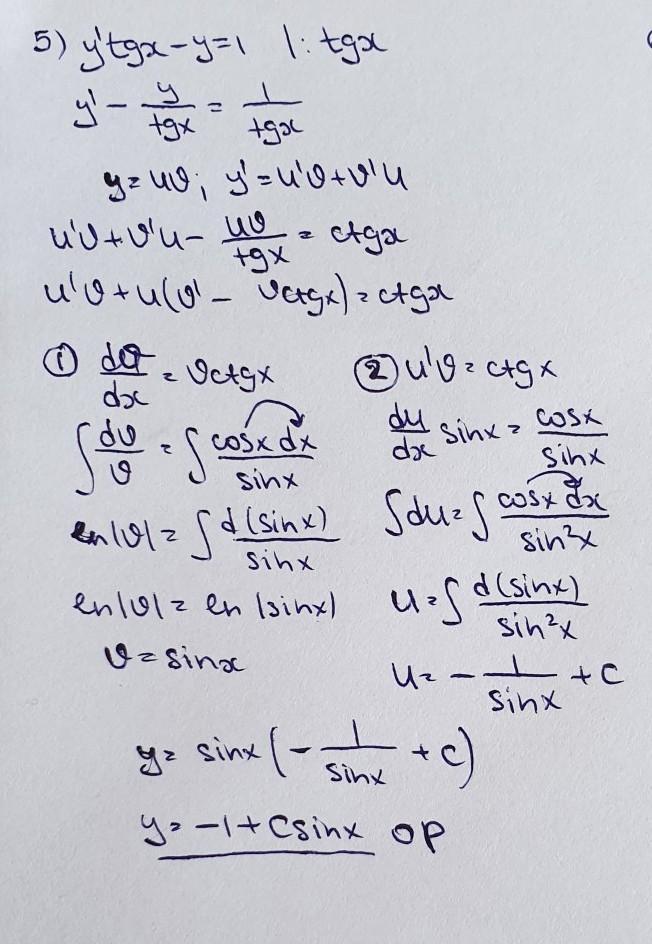 5) y'tgx - y = 1 | : tgx
y' - y/tgx = 1/tgx
y = uv; y' = u'v + v'u
u'v + v'u - uv/tgx = ctgx
u'v + u(v' - vctgx) = ctgx
① dv/dx = vctgx
∫ dv/v = ∫ cosx dx/sinx
ln|v| = ∫ d(sinx)/sinx
ln|v| = ln |sinx|
v = sinx
② u'v = ctgx
du/dx sinx = cosx/sinx
∫du = ∫ cosx dx/sin²x
u = ∫ d(sinx)/sin²x
u = - 1/sinx + c
y = sinx(- 1/sinx + c)
y = -1 + Csinx op